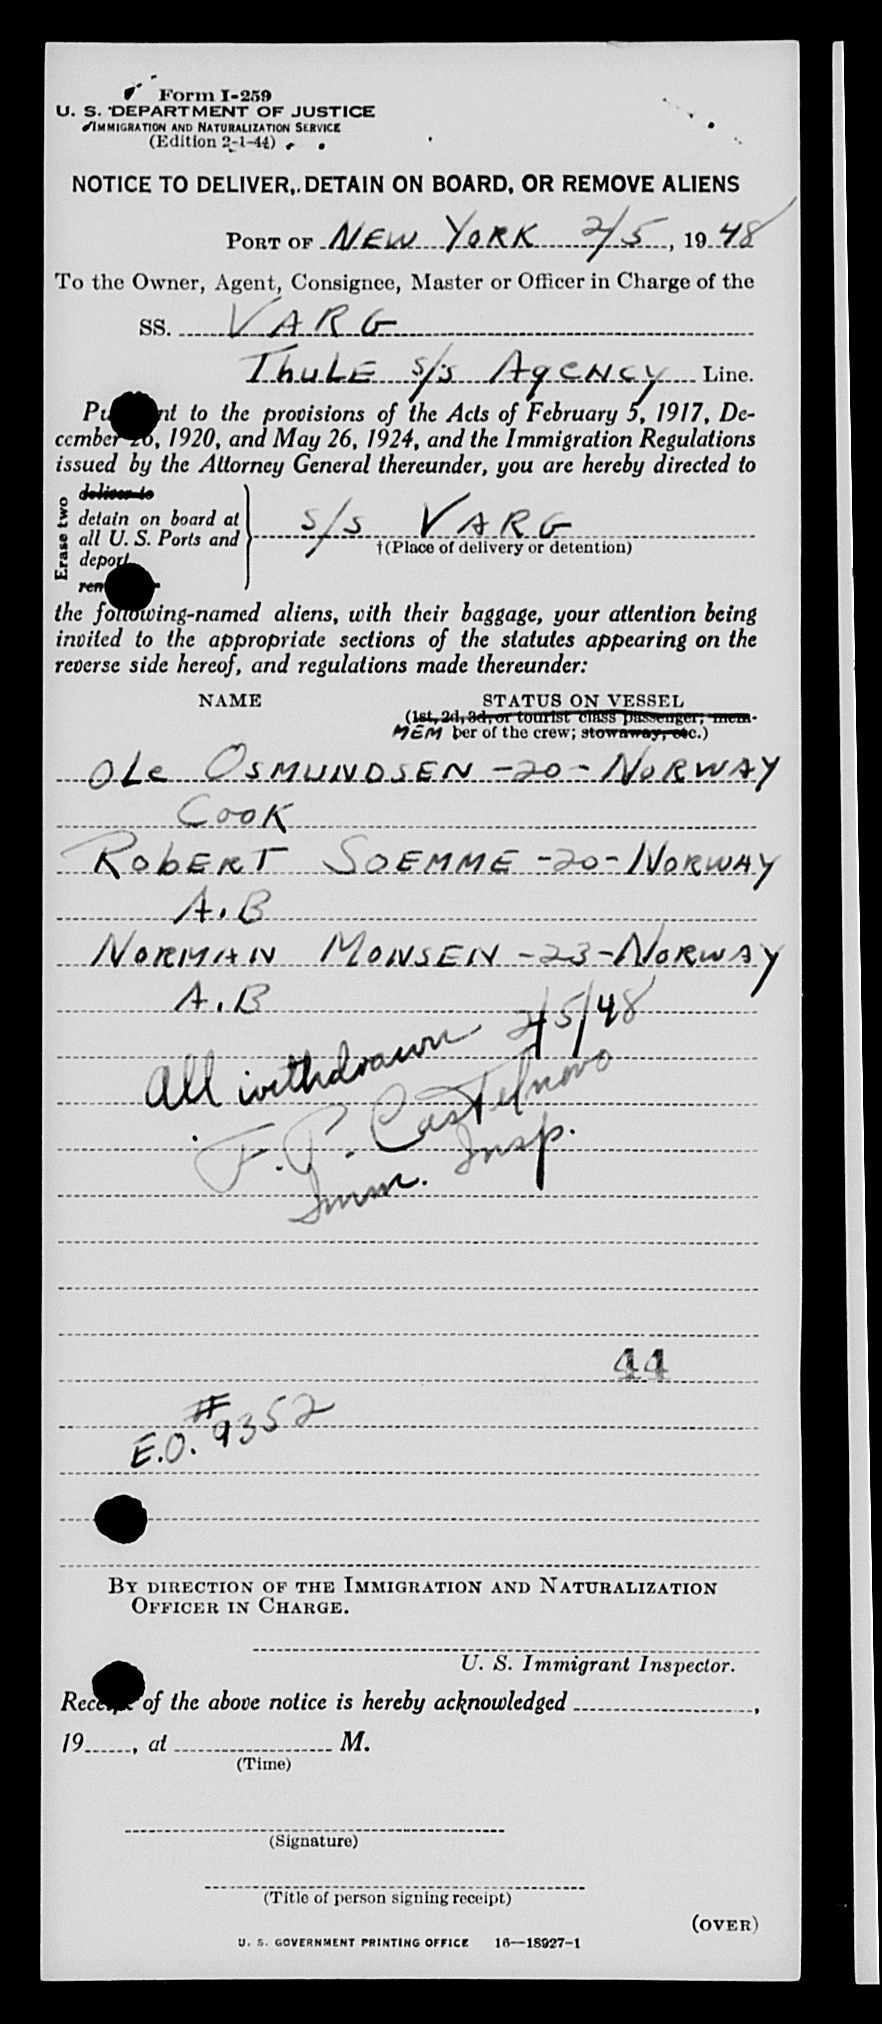 Form I-259
U. S. DEPARTMENT OF JUSTICE
IMMIGRATION AND NATURALIZATION SERVICE
(Edition 2-1-44)
NOTICE TO DELIVER, DETAIN ON BOARD, OR REMOVE ALIENS
PORT OF NEW YORK 2/5, 1948
To the Owner, Agent, Consignee, Master or Officer in Charge of the
SS. VARG
ThuLE S/S AgENCy Line.
nt to the provisions of the Acts of February 5, 1917, De-
cember 26, 1920, and May 26, 1924, and the Immigration Regulations
issued by the Attorney General thereunder, you are hereby directed to
Erase two
deliver to
detain on board at
all U. S. Ports and
deport
S/S VARG
†(Place of delivery or detention)
the following-named aliens, with their baggage, your attention being
invited to the appropriate sections of the statutes appearing on the
reverse side hereof, and regulations made thereunder:
NAME STATUS ON VESSEL
(1st, 2d, 3d, or tourist class passenger; mem-
MEM ber of the crew; stowaway, etc.)
OLe OSMUNDSEN - 20 - NORWAY
COOK
RObERT SOEMME - 20 - NORWAY
A.B
NORMAN MONSEN - 23 - NORWAY
A.B
All withdrawn 2/5/48
F. P. Castelnovo
Imm. Insp.
44
E.O. #9352
BY DIRECTION OF THE IMMIGRATION AND NATURALIZATION
OFFICER IN CHARGE.
U. S. Immigrant Inspector.
Receipt of the above notice is hereby acknowledged ,
19 , at M.
(Time)
(Signature)
(Title of person signing receipt)
(OVER)
U. S. GOVERNMENT PRINTING OFFICE 16—18927-1